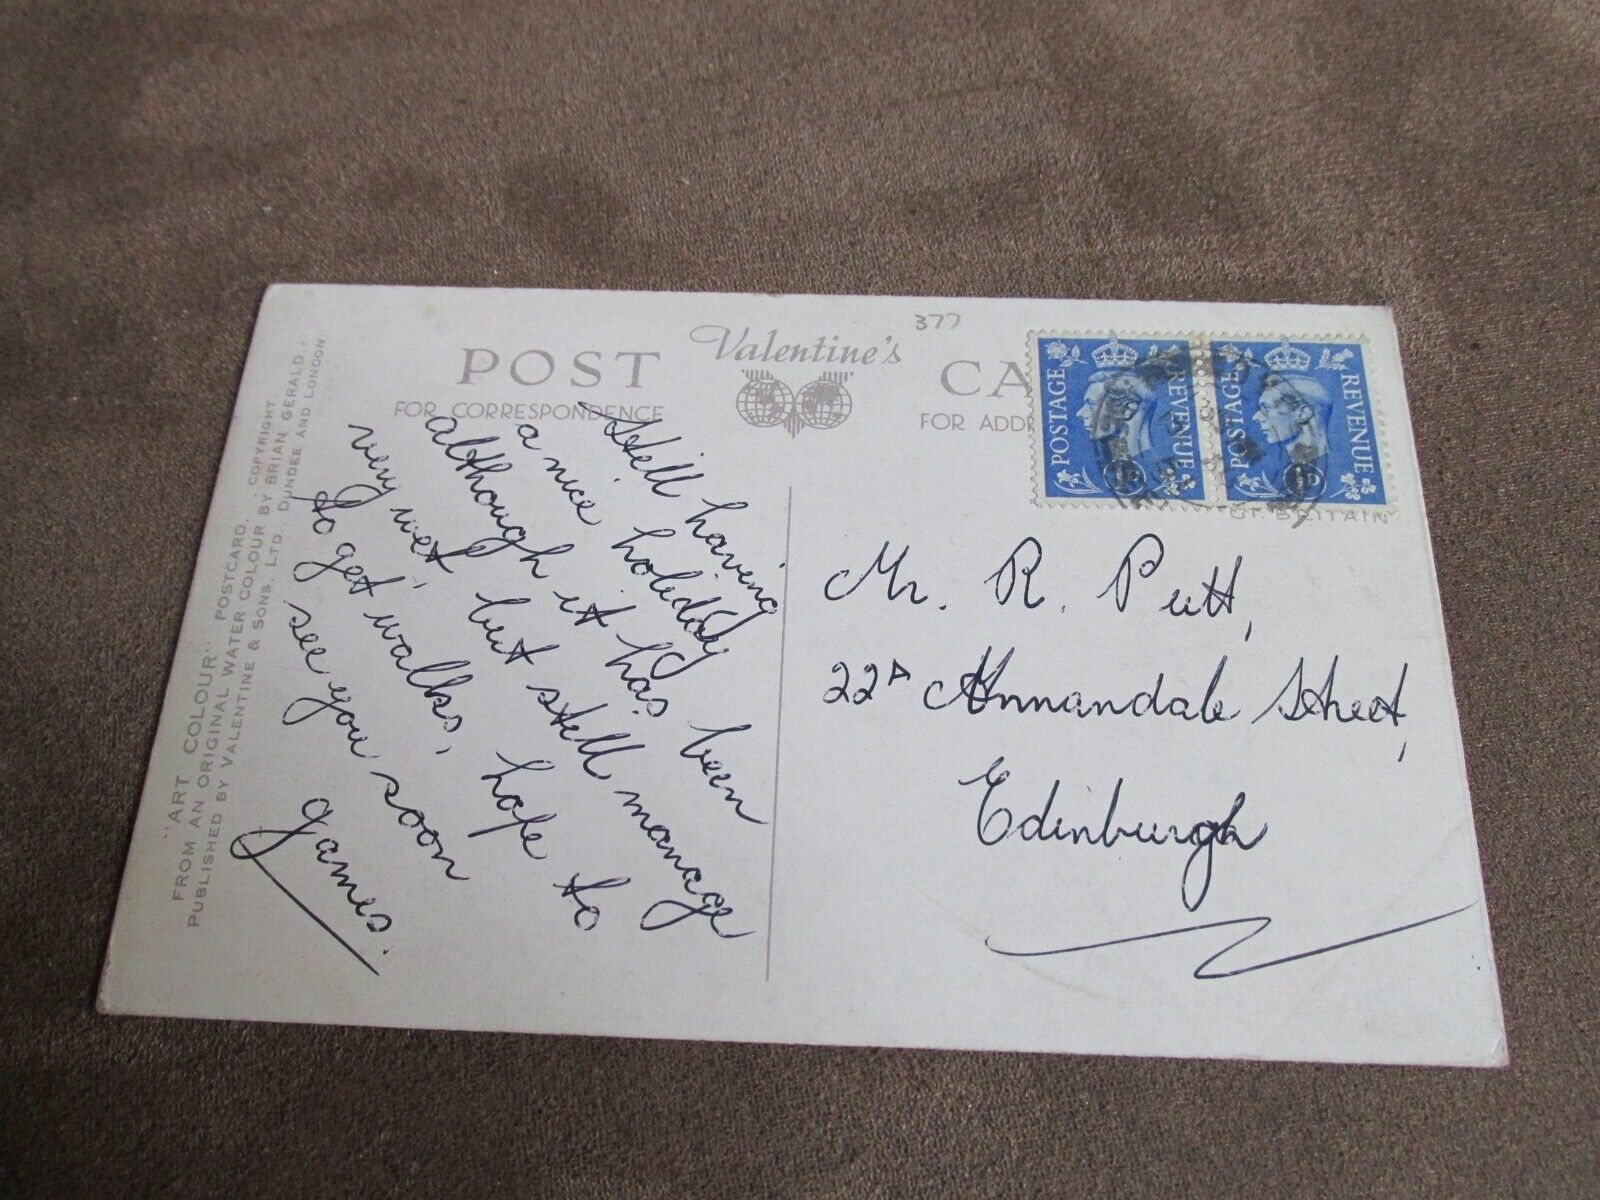 "ART COLOUR" POSTCARD. COPYRIGHT
FROM AN ORIGINAL WATER COLOUR BY BRIAN GERALD.
PUBLISHED BY VALENTINE & SONS, LTD., DUNDEE AND LONDON
377
POST Valentine's CA
FOR CORRESPONDENCE FOR ADD
POSTAGE REVENUE
POSTAGE REVENUE
GT. BRITAIN
Still having
a nice holiday
although it has been
very wet, but still manage
to get walks, hope to
see you soon
James.
Mr. R. Putt,
22A Annandale Street,
Edinburgh